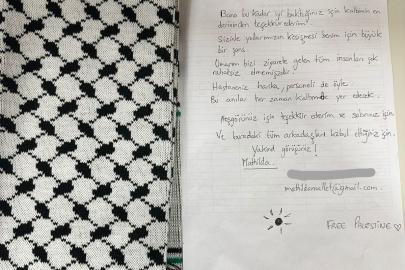 Bana bu kadar iyi baktığınız için kalbimin en
derininden teşekkür ederim!
Sizinle yollarımızın kesişmesi benim için büyük
bir şans.
Umarım bizi ziyarete gelen tüm insanları çok
rahatsız etmemişizdir.
Hastaneniz harika, personeli de öyle.
Bu anılar her zaman kalbimde yer edecek.
Hoşgörünüz için teşekkür ederim ve sabrınız için.
Ve buradaki tüm arkadaşları kabul ettiğiniz için.
Yakında görüşürüz!
Mathilda
@gmail.com
FREE PALESTINE ♡